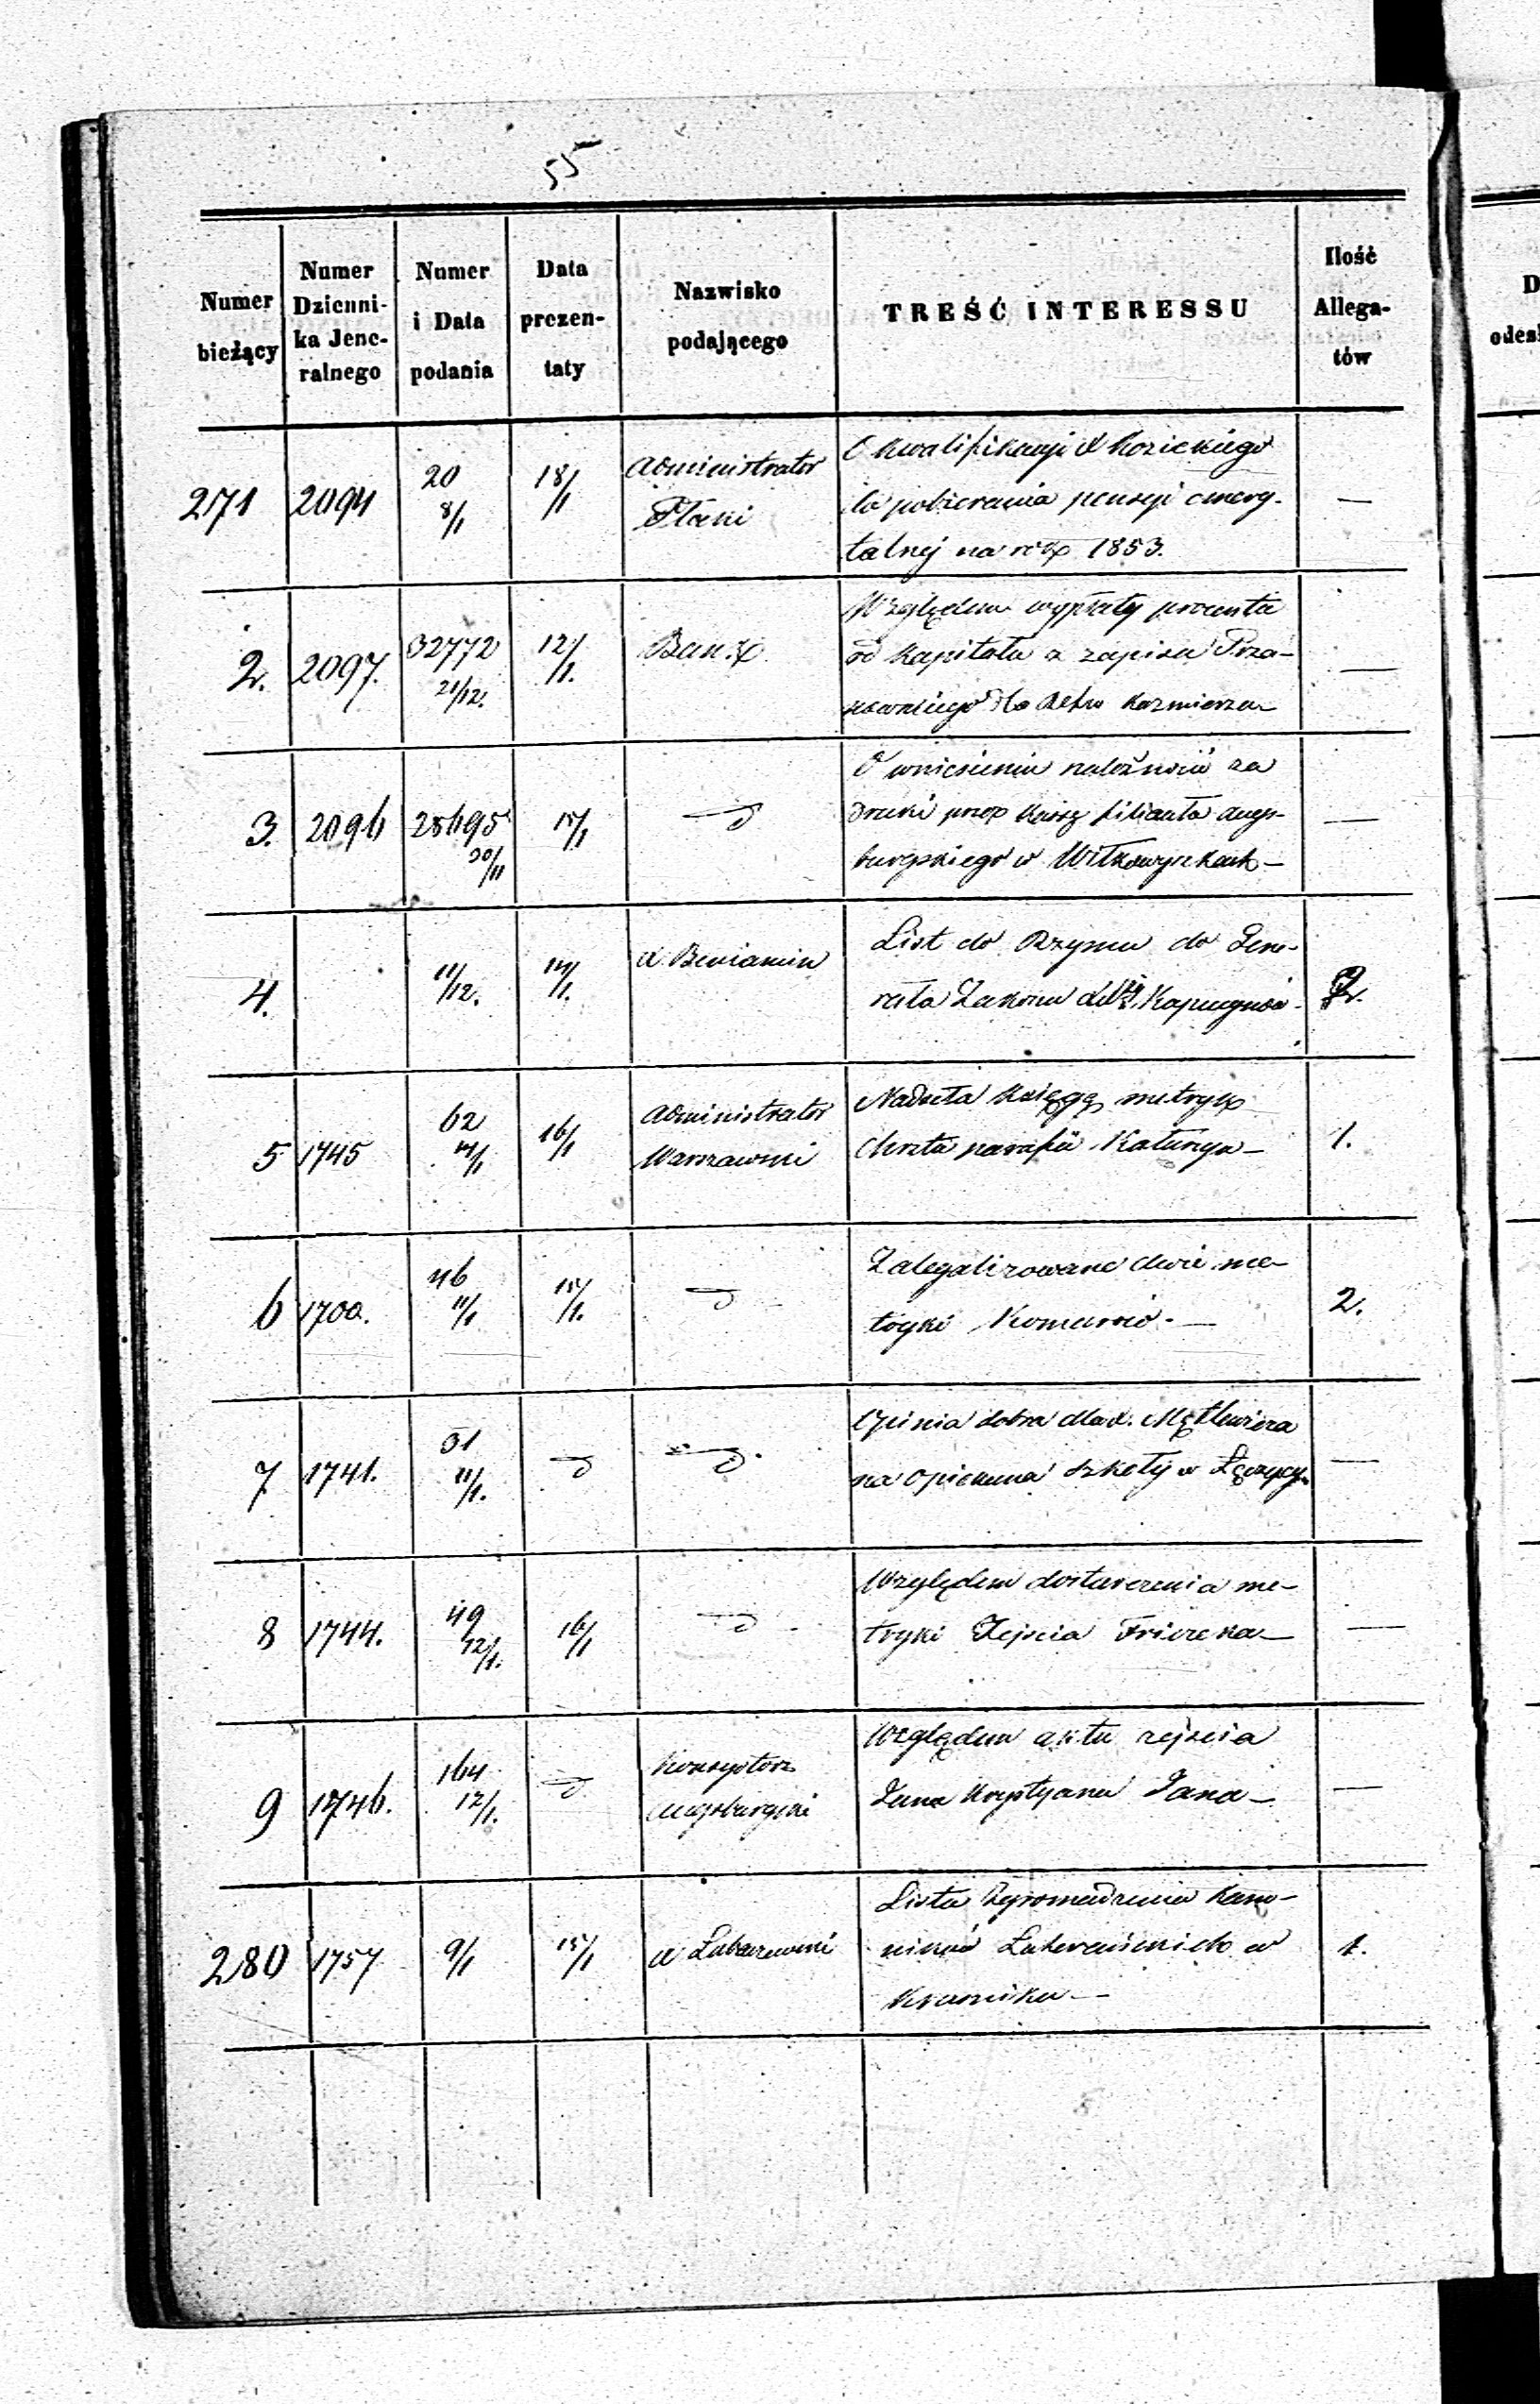 55
Numer bieżący
Numer Dzienni-
ka Jene-
ralnego
Numer i Data podania
Data prezen-
taty
Nazwisko podającego
TREŚĆ INTERESSU
Ilość Allega-
tów
D
odes
271 2094 20 8/1 18/1 Administrator
O kwalifikacyi X Kozickiego
do pobierania pensyi emery-
talnej na rok 1853. —
2. 2097. 32772 21/12. 12/1. Bank
Względem wypłaty procentu
od kapitału z zapisu
dla Kazmierza —
3. 2096 25695 30/11 15/1
O wniesieniu należności za
druki przez kassę filiału augs-
burgskiego w Wiłkowyszkach —
4. 11/12. 14/1. X Beniamin
List do Rzymu do Jene-
rała Zakonu Kapucynów 2.
5 1745 62 14/1 16/1 Administrator
Warszawski
Nadsyła księgę metryk
chrztu parafii Kałuszyn — 1.
6 1700. 46 11/1 15/1.
Zalegalizowane dwie me-
tryki 2.
7 1741. 31 11/1.
Opinia dobra dla X.
na opiekuna szkoły w Łęczycy —
8 1744. 49 12/1. 16/1
Względem dostarczenia me-
tryki Zejścia —
9 1746. 164 12/1. Konsystorz
Augsburgski
Względem aktu zejścia
Jana Krystyana Jana — —
280 1757 9/1 15/1
Lista Zgromadzenia Kano-
ników Laterańskich w
Kraśniku — 1.